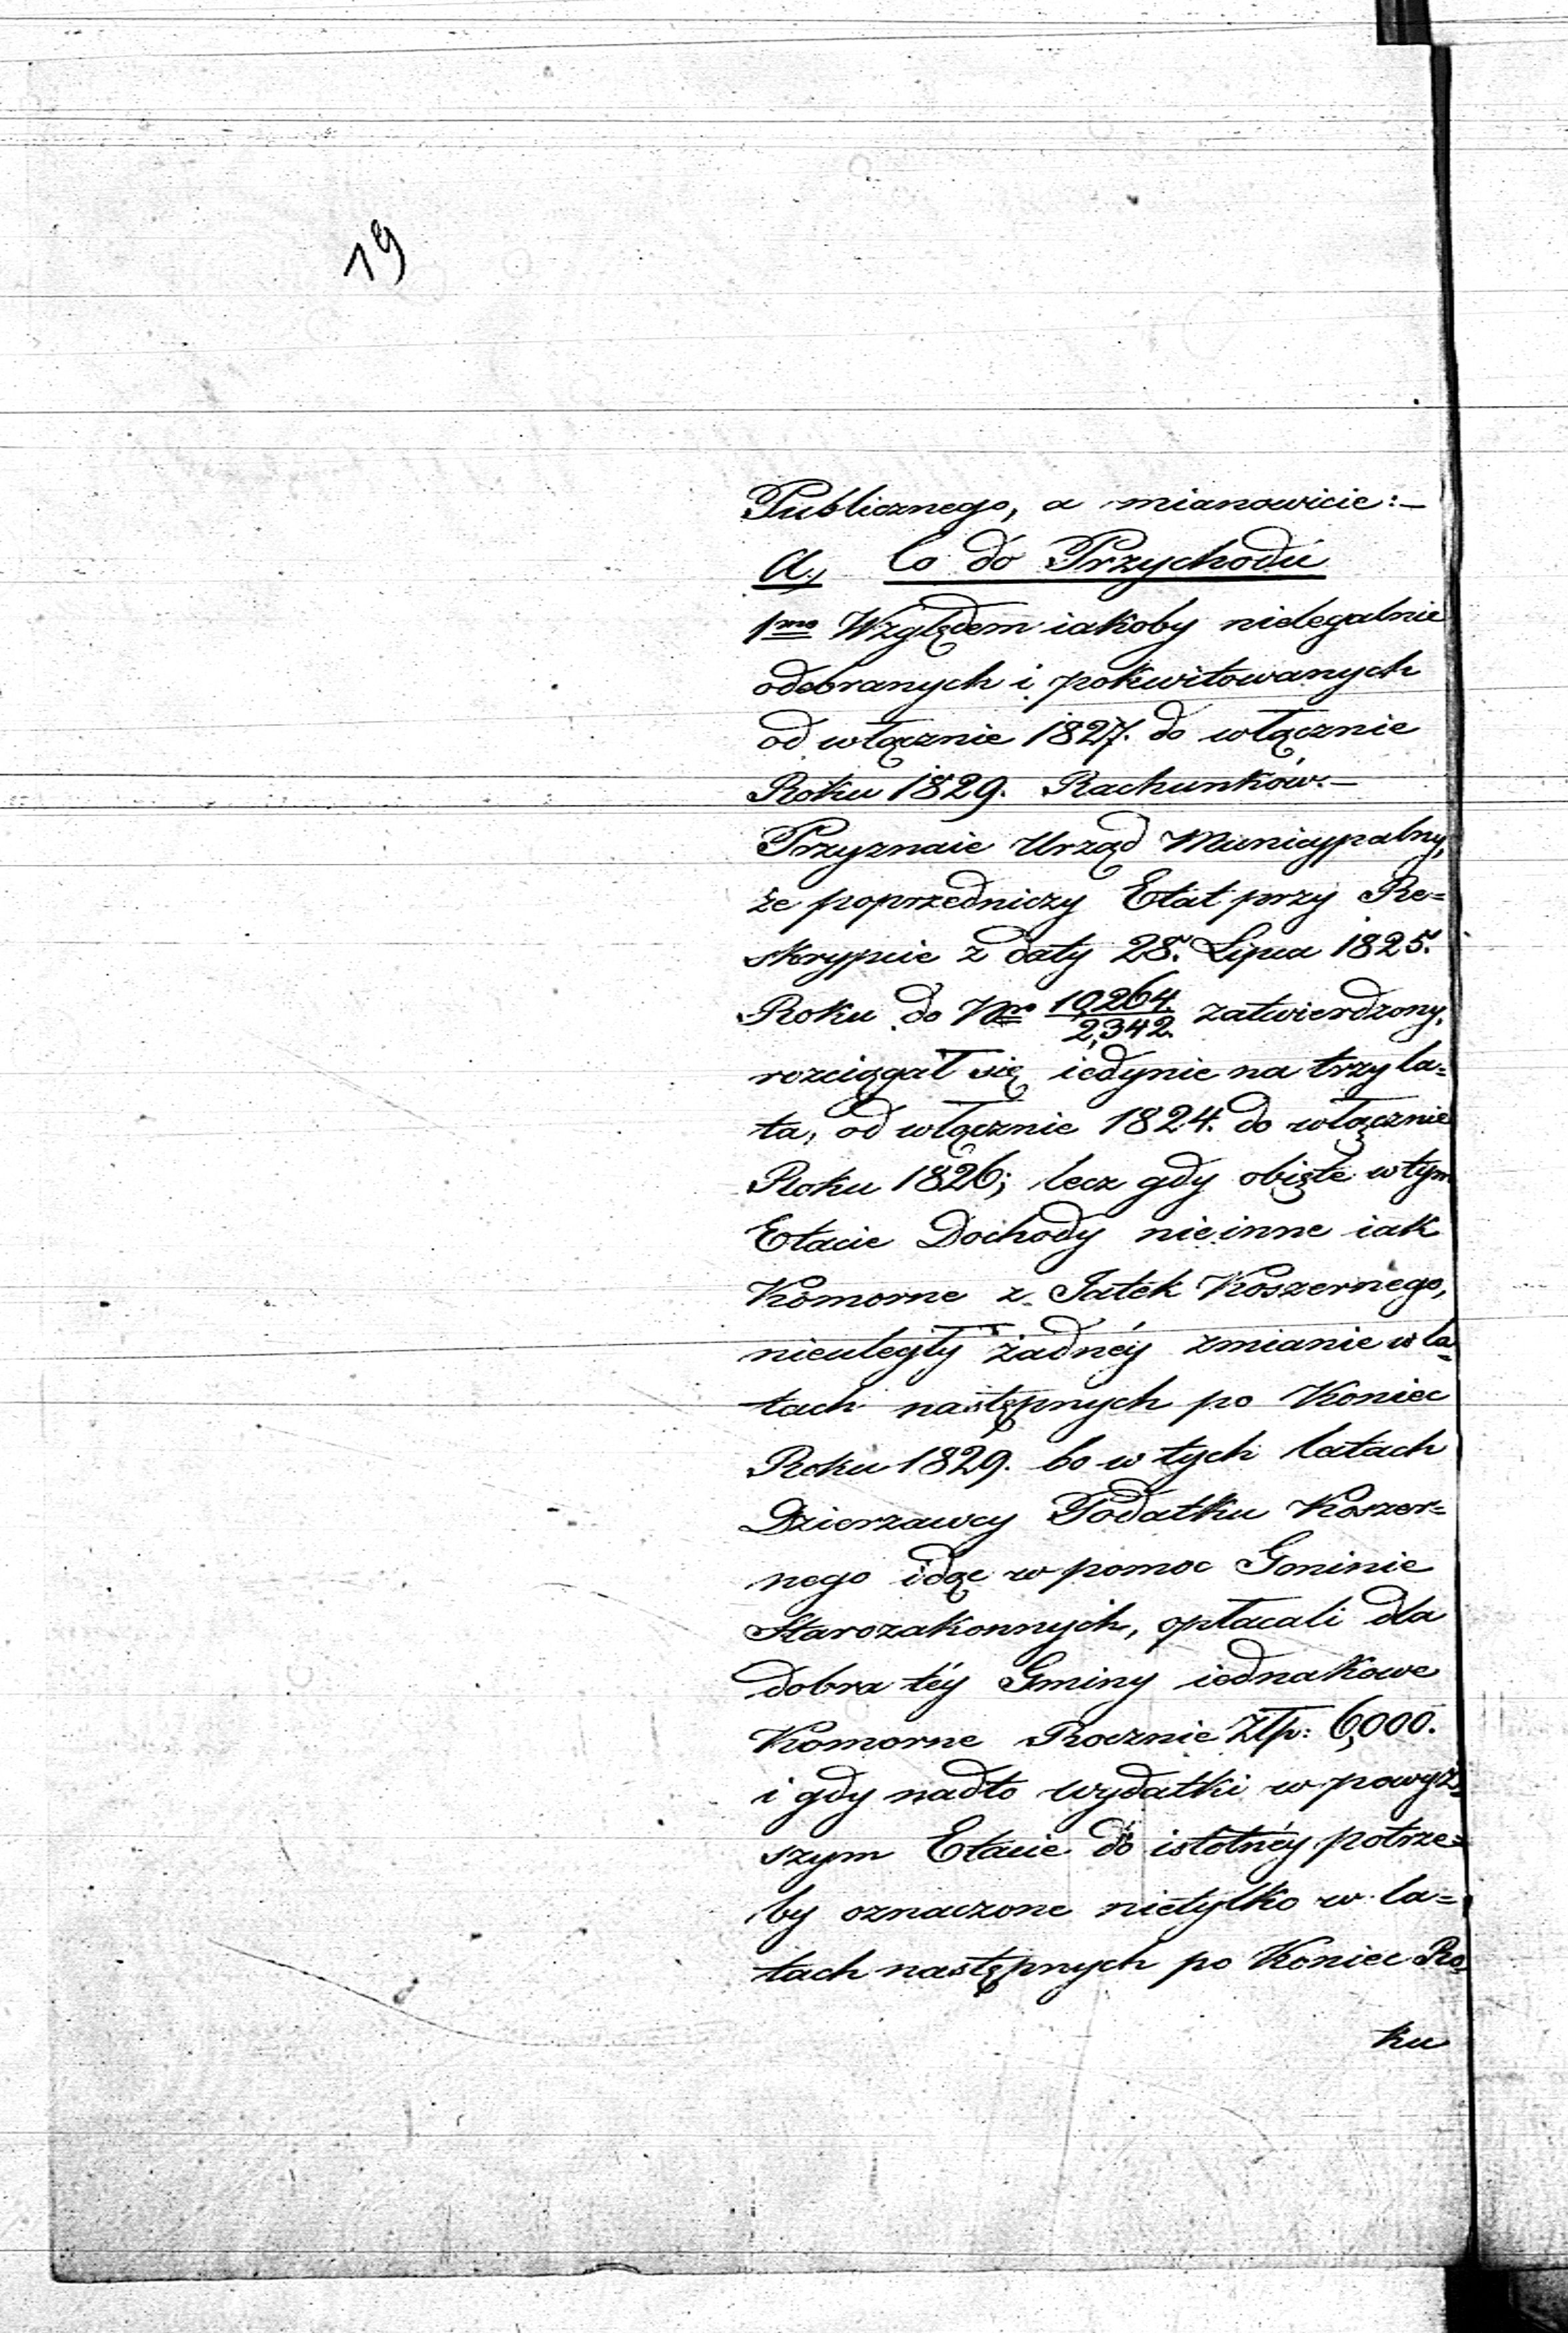 19
Publicznego, a mianowicie:–
A., Co do Przychodu
1mo Względem iakoby nielegalnie
odebranych i pokwitowanych
od włącznie 1827. do włącznie
Roku 1829. Rachunków.–
Przyznaie Urząd Municypalny,
że poprzedniczy Etat przy Re=
skrypcie z daty 28. Lipca 1825.
Roku do Nro 10,264./2,342. zatwierdzony,
rozciągał się iedynie na trzy la=
ta, od włącznie 1824. do włącznie
Roku 1826; lecz gdy obięte w tym
Etacie Dochody nie inne iak
Komorne z Jatek Koszernego,
nieuległy żadnéy zmianie w la=
tach następnych po Koniec
Roku 1829. bo w tych latach
Dzierzawcy Podatku Koszer=
nego idąc w pomoc Gminie
Starozakonnych, opłacali dla
dobra téy Gminy iednakowe
Komorne Rocznie Złp: 6,000.
i gdy nadto wydatki w powyż=
szym Etacie do istotnéy potrze=
by oznaczone nietylko w la=
tach następnych po Koniec Ro=
ku